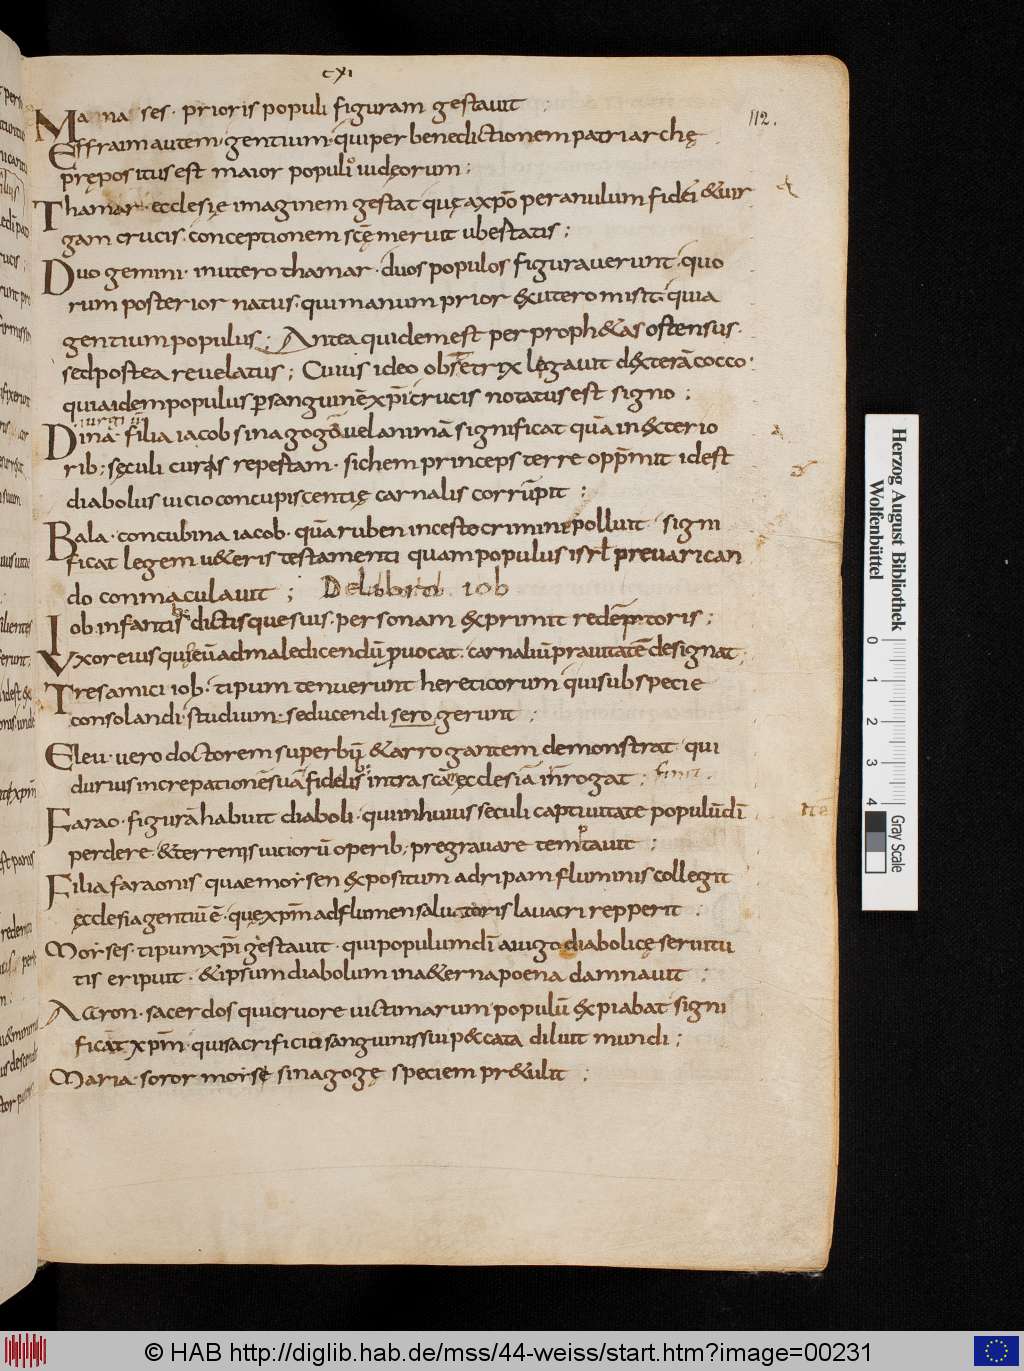 cxi
112.
Manasses · prioris populi figuram gestauit ;
Effraim autem · gentium · qui per benedictionem patriarchę
prępositus est maior populo iudęorum ;
Thamar · ecclesię imaginem gestat quę a xp̄o per anulum fidei & uir
gam crucis · conceptionem scę̄ meruit ubertatis ;
Duo gemini · in utero thamar · duos populos figurauerunt · quo
rum posterior natus · qui manum prior ex utero misit · quia
gentium populus ; Antea quidem est per proph&as ostensus ·
sed postea reuelatus ; Cuius ideo obsetrix legauit dexterā cocco ·
quia idem populus p sanguinē xp̄i crucis notatus est signo ;
Dina · filia iacob sinagogā uel animā significat quā in exterio
rib; sęculi curis · sichem princeps terre opp̄mit idest
diabolus uicio concupiscentię carnalis corrūpit ;
Bala · concubina iacob · quā ruben incesto crimine polluit signi
ficat legem u&eris testamenti quam populus isrl preuarican
do conmaculauit ; De libro iob
Iob infantis dictisque suis · personam exprimit redēptoris ;
Vxor eius qui eū ad maledicendū puocat · carnaliū prauitatē designat ·
Tres amici iob · tipum tenuerunt hereticorum qui sub specie
consolandi · studium seducendi sero gerunt ;
Eleu · uero doctorem superbū & arrogantem demonstrat · qui
durius increpationē suā fidelib; intra scā ęcclesiā inrogat ; finit ·
Farao · figurā habuit diaboli · qui in huius seculi captiuitate populū dī
perdere · & terrenis uiciorū operib; pregrauare temtauit ;
Filia faraonis quae moisen expositum ad ripam fluminis collegit
ęcclesia gentiū ē · quę xp̄m ad flumen salutoris lauacri repperit ;
Moises · tipum xp̄i gestauit · qui populum dī a iugo diabolicę seruitu
tis eripuit · & ipsum diabolum in a&erna poena damnauit ;
Aaron · sacerdos qui cruore uictimarum populū expiabat signi
ficat xp̄m · qui sacrificio sanguinis sui p&cata diluit mundi ;
Maria · soror moise sinagogę speciem pr&ulit ;
Herzog August Bibliothek
Wolfenbüttel
0 1 2 3 4
Gray Scale
© HAB http://diglib.hab.de/mss/44-weiss/start.htm?image=00231